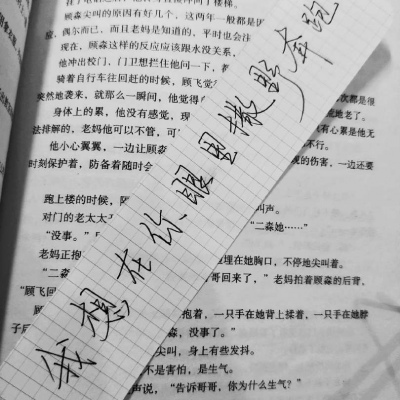 顾淼尖叫的原因有好几个，这两年一般都是
偶尔而已，而且老妈是知道的，平时也会注
现在，顾淼这样的反应应该跟水没关系，
他冲出校门，门卫想拦住他问一下，都
骑着自行车往回赶的时候，顾飞觉
突然地袭来，就那么一瞬间，他觉得自
身体上的累，他没有感觉，现
有心累是他无
法排解的，老妈他可以不管，可
不行。
他小心翼翼，一边让顾淼
现的伤害，一边还要
时刻保护着，防备着随时
跑上楼的时候，
叫声。
对门的老太太
二淼她……”
“没事。”
老妈正抱
埋在她胸口，不停地尖叫着。
“二淼
哥回来了，”老妈拍着顾淼的后背，
“顾飞回
抱着，一只手在她背上搂着，一只手在她脖
子后
淼，没事了。”
尖叫，身上有些发抖。
不是害怕，是生气。
声说，“告诉哥哥，你为什么生气？”
我想在你眼里撒野奔跑